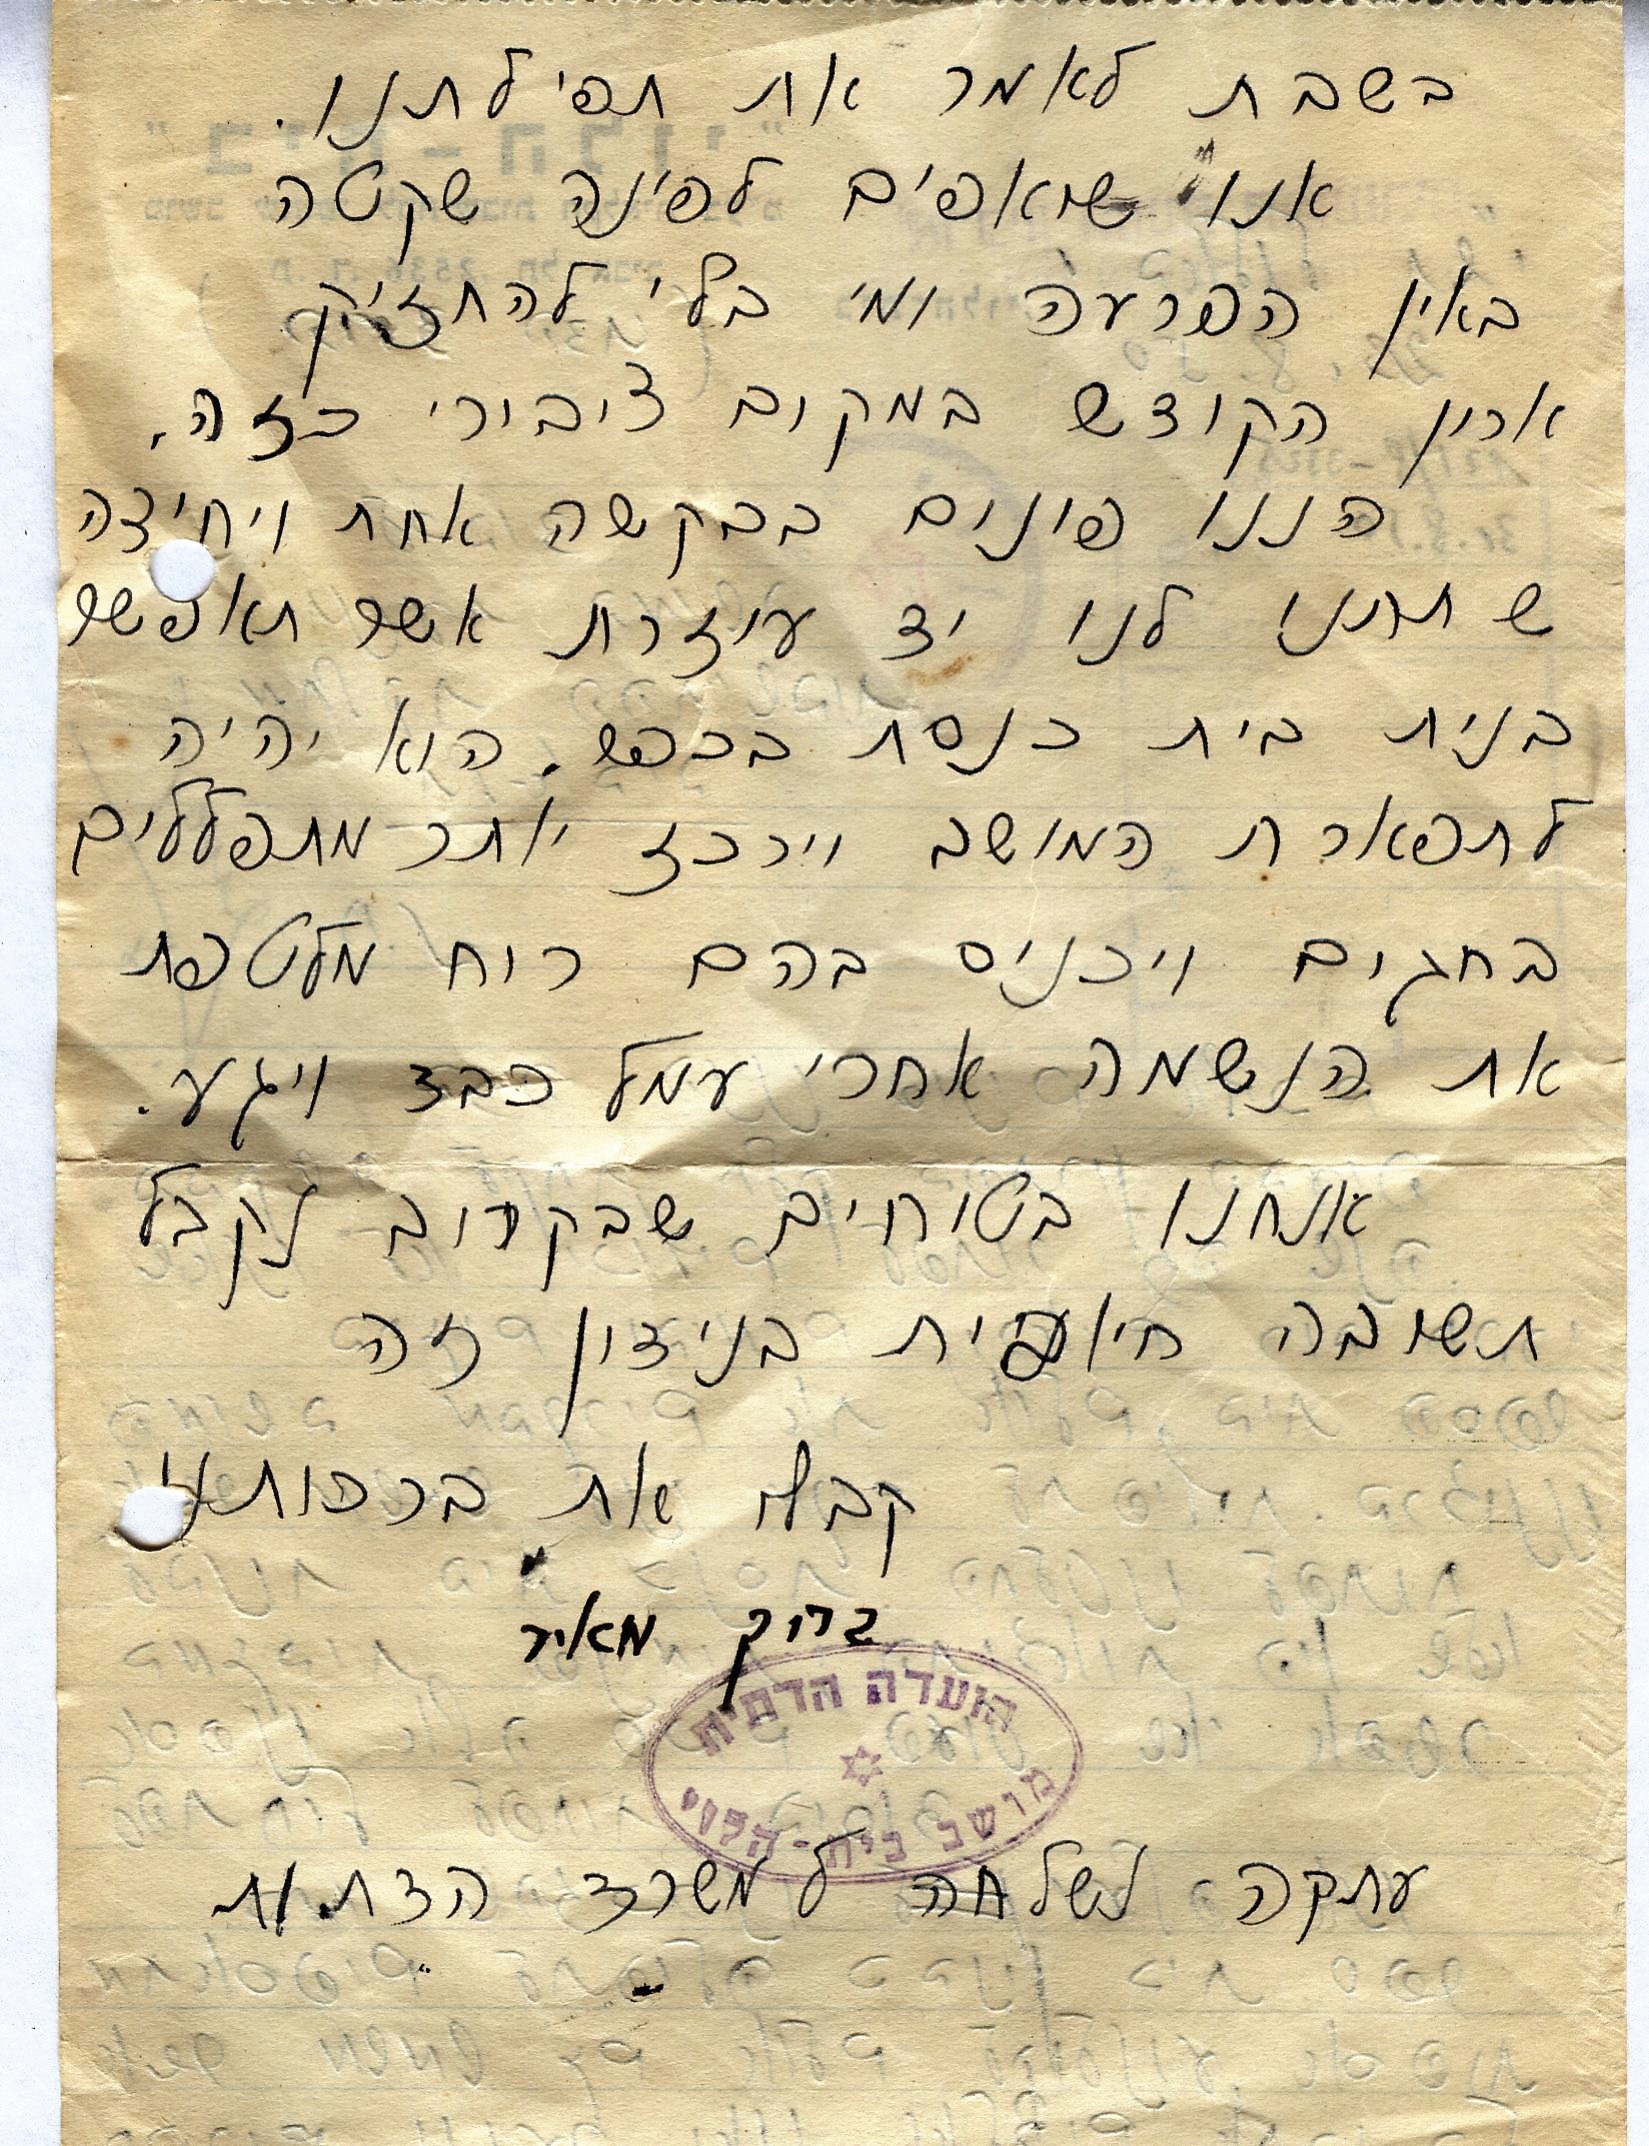 בשבת לאמר את תפילתנו.
אנו שואפים לפינה שקטה
באין הפרעה ומי בלי להחזיק
ארון הקודש במקום ציבורי כזה.
הננו פונים בבקשה אחת ויחידה
שתתנו לנו יד עוזרת אשר תאפשר
בנית בית כנסת בכפר. הוא יהיה
לתפארת המושב וירכז יותר מתפללים
בחגים ויכניס בהם רוח מלטפת
את הנשמה אחרי עמל כבד ויגע.
אנחנו בטוחים שבקרוב נקבל
תשובה חיובית בנידון זה
קבלו את ברכותי
ברוך מאיר
הועדה הדתית
מושב בית-הלוי
עתקה נשלחה למשרד הדתות